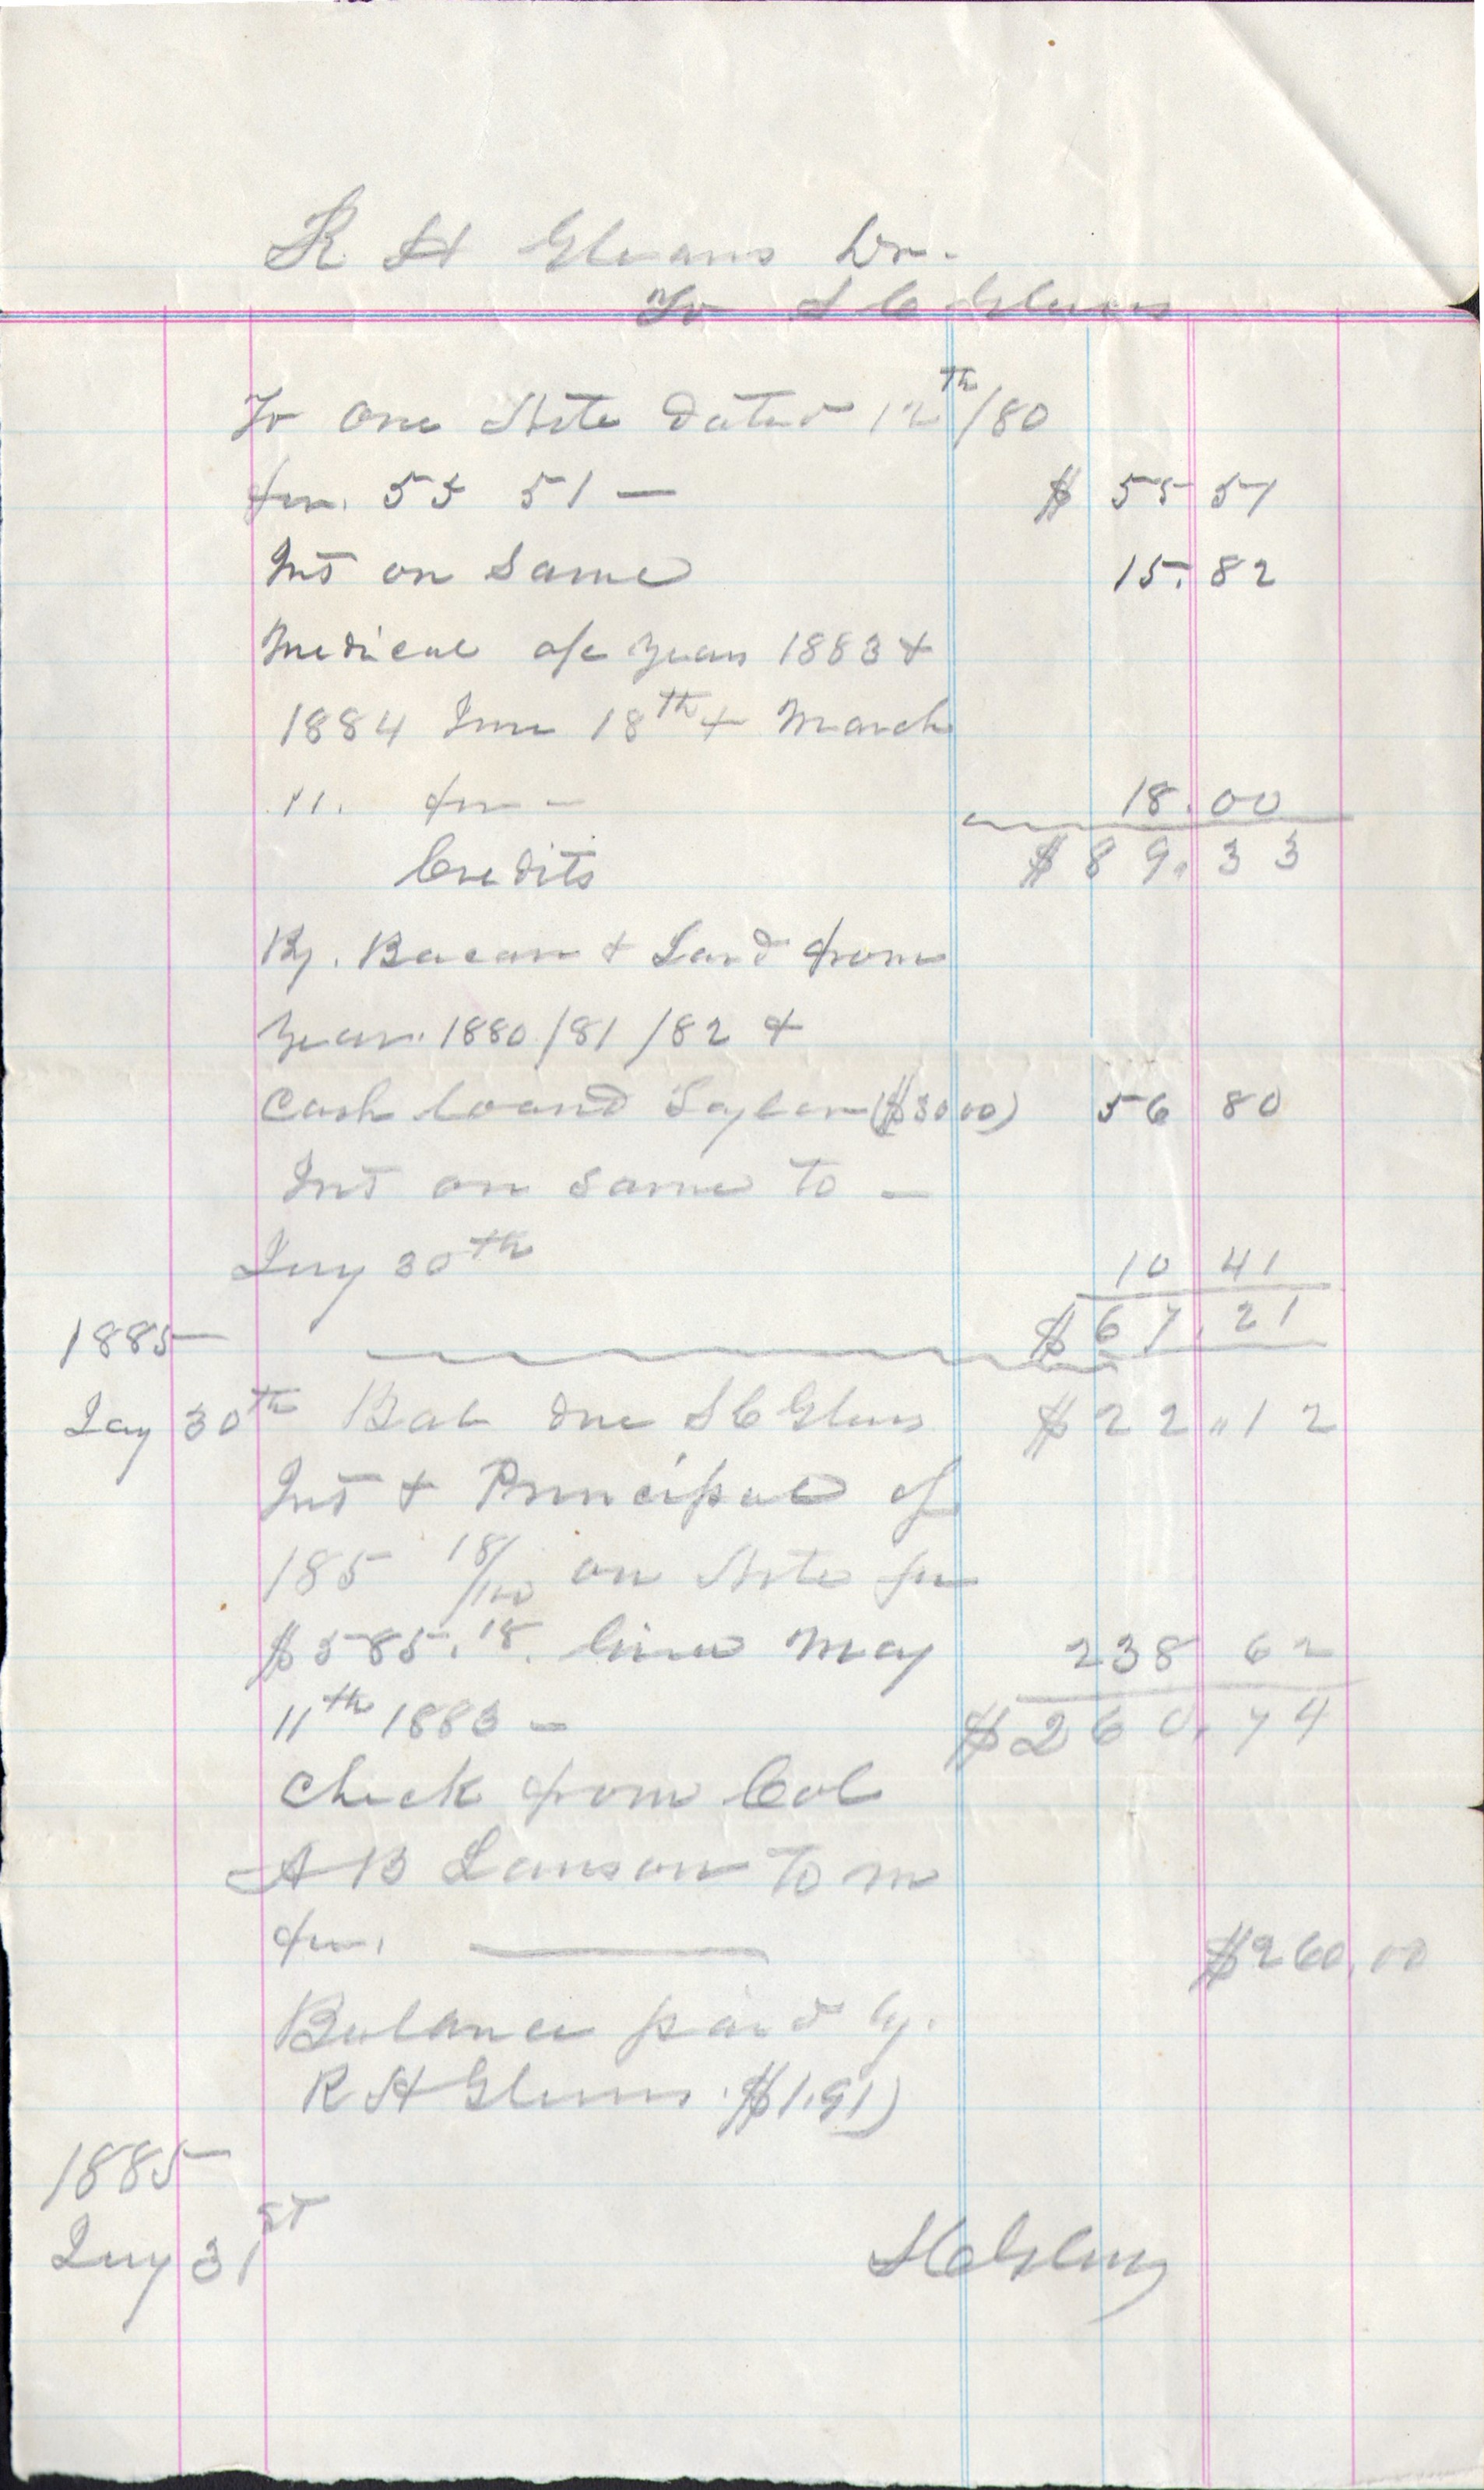 R H Glenns Dr.
To S C Glenns
To one Note dated 12th/80
for. 55 51 — $ 55 51
Int on Same 15.82
Medical a/c years 1883 +
1884 June 18th + March
11. for - 18.00
Credits $ 89.33
By. Bacan + Lard from
year. 1880/81/82 +
Cash loand ($30 00) 56 80
Int on same to —
30th 10 41
$ 67.21
1885
30th Bal due S C Glens $ 22.12
Int + Principal of
185 18/100 on Note for
$585.18. Since May 238 62
11th 1883 — $260.74
Check from Col
A B Lamson to m
for. —— $260.00
Balance paid by.
R H Glenns. $1.91)
1885
31st S C Glenns